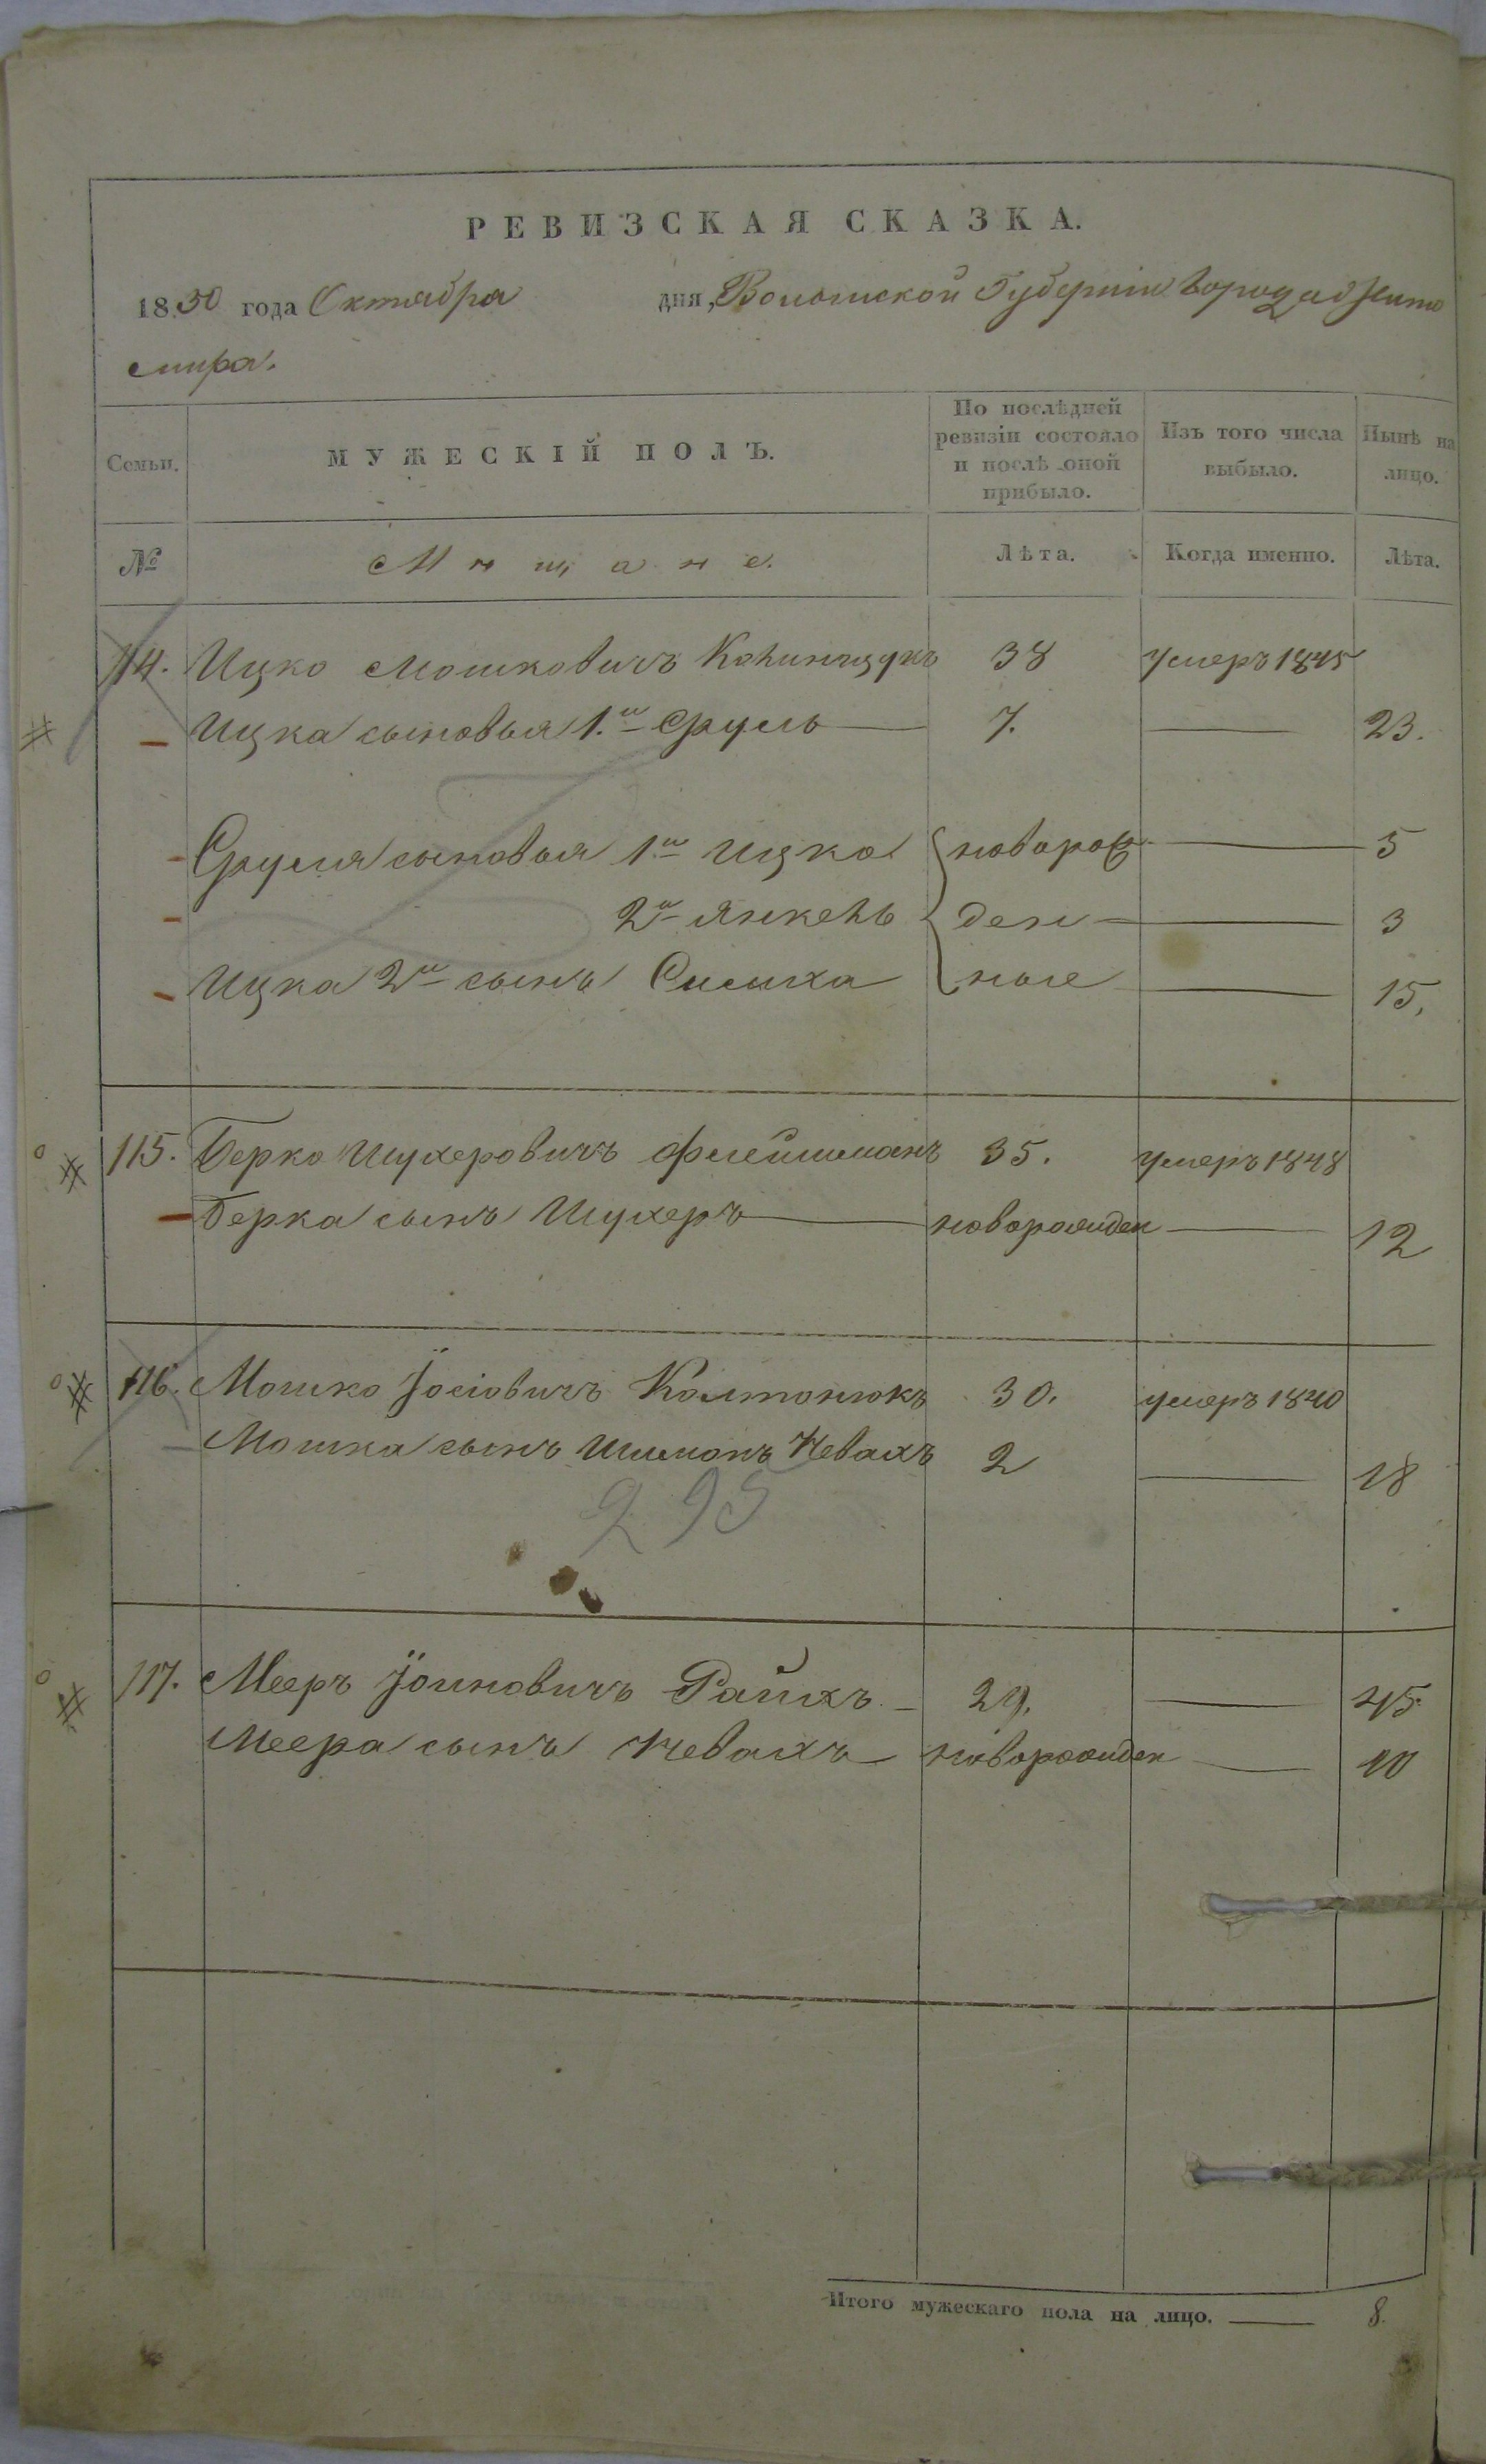 РЕВИЗСКАЯ СКАЗКА.
1850 года Октября дня, Волынской Губерніи города Жито
мира.
Семьи. МУЖЕСКІЙ ПОЛЪ. По послѣдней ревизіи состояло и послѣ оной прибыло. Изъ того числа выбыло. Нынѣ на лицо.
№ Мѣщане. Лѣта. Когда именно. Лѣта.
114. Ицко Мошковичъ 38 умеръ 1845
Ицка сыновья 1й Сруль 7. 23.
Сруля сыновья 1й Ицко новорож 5
2й Янкель ден 3
Ицка 2й сынъ Симха ные 15.
115. Берко Шухеровичъ Флейшманъ 35. умеръ 1848
Берка сынъ Шухеръ новорожден 12
116. Мошко Іосіовичъ Колтонюкъ 30. умеръ 1840
Мошка сынъ Шимонъ Невахъ 2 18
295
117. Мееръ Іоиновичъ Райхъ 29. 45.
Меера сынъ Невахъ новорожден 10
Итого мужескаго пола на лицо. 8.